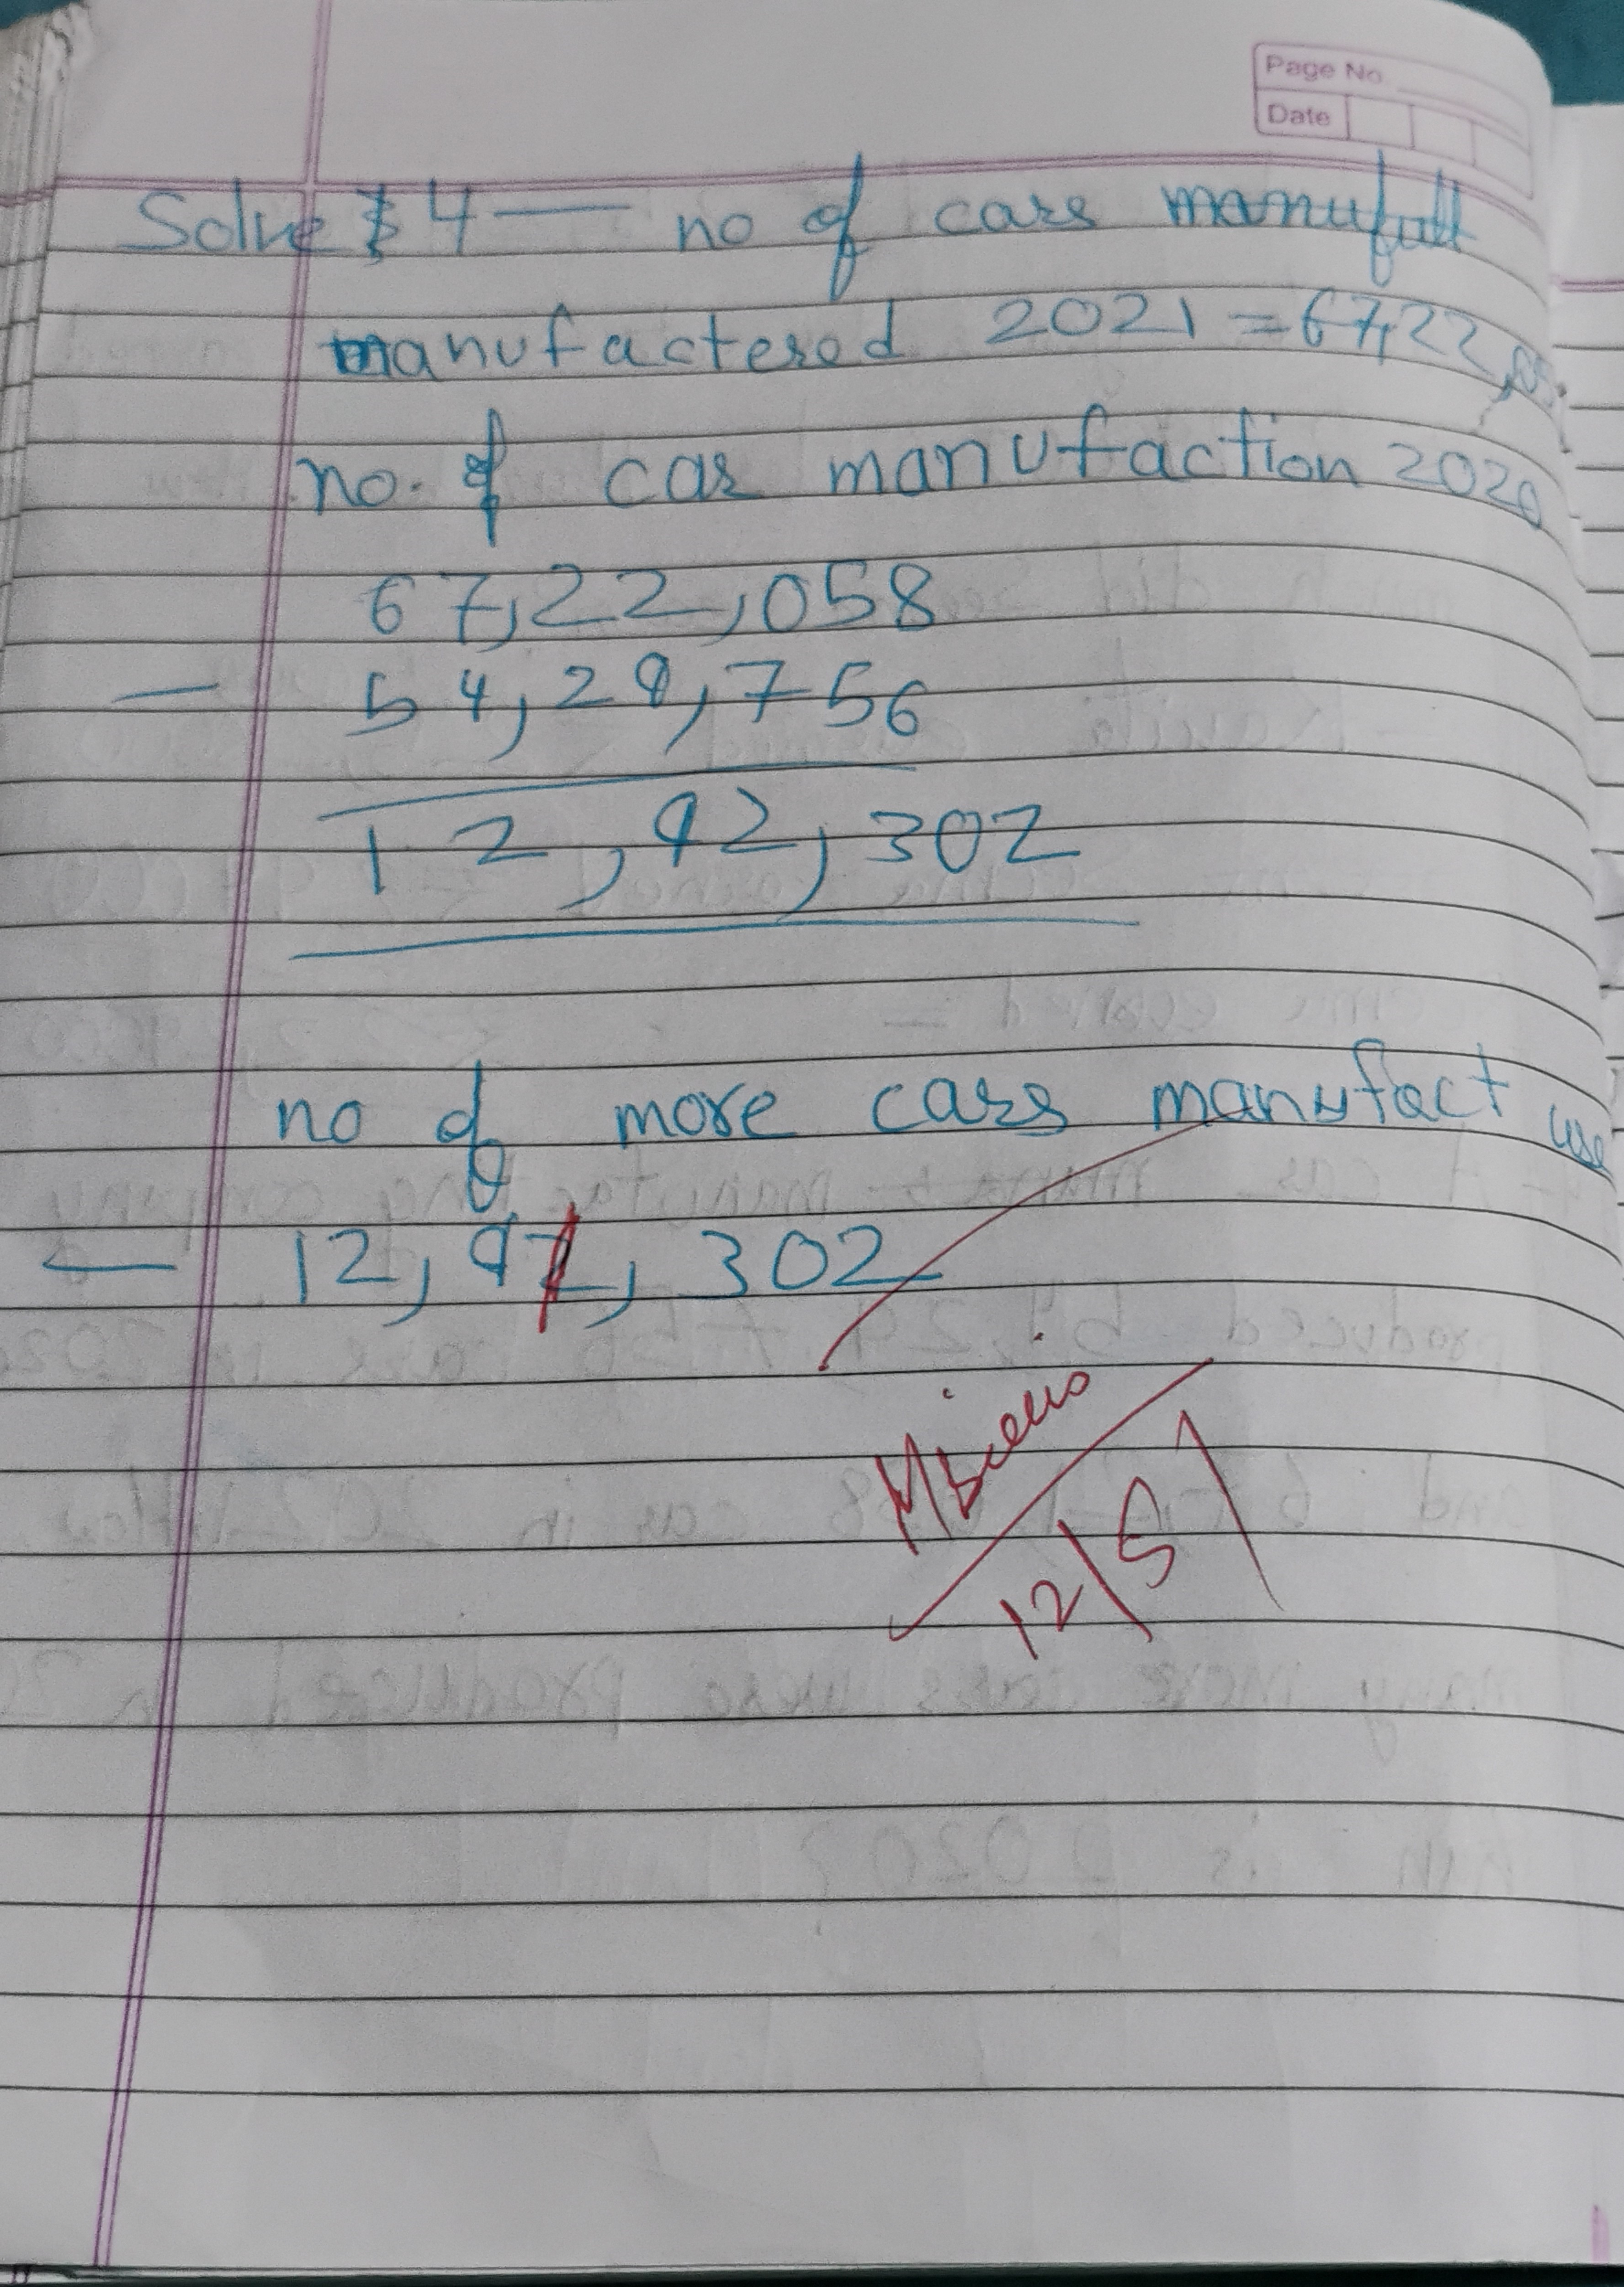 Page No.
Date
Solve 4 — no of cars
manufactered 2021 = 67,22,05
no. of car manufaction 2020
67,22,058
— 54,29,756
12,92,302
no of more cars manufact use
— 12,92, 302
12/5